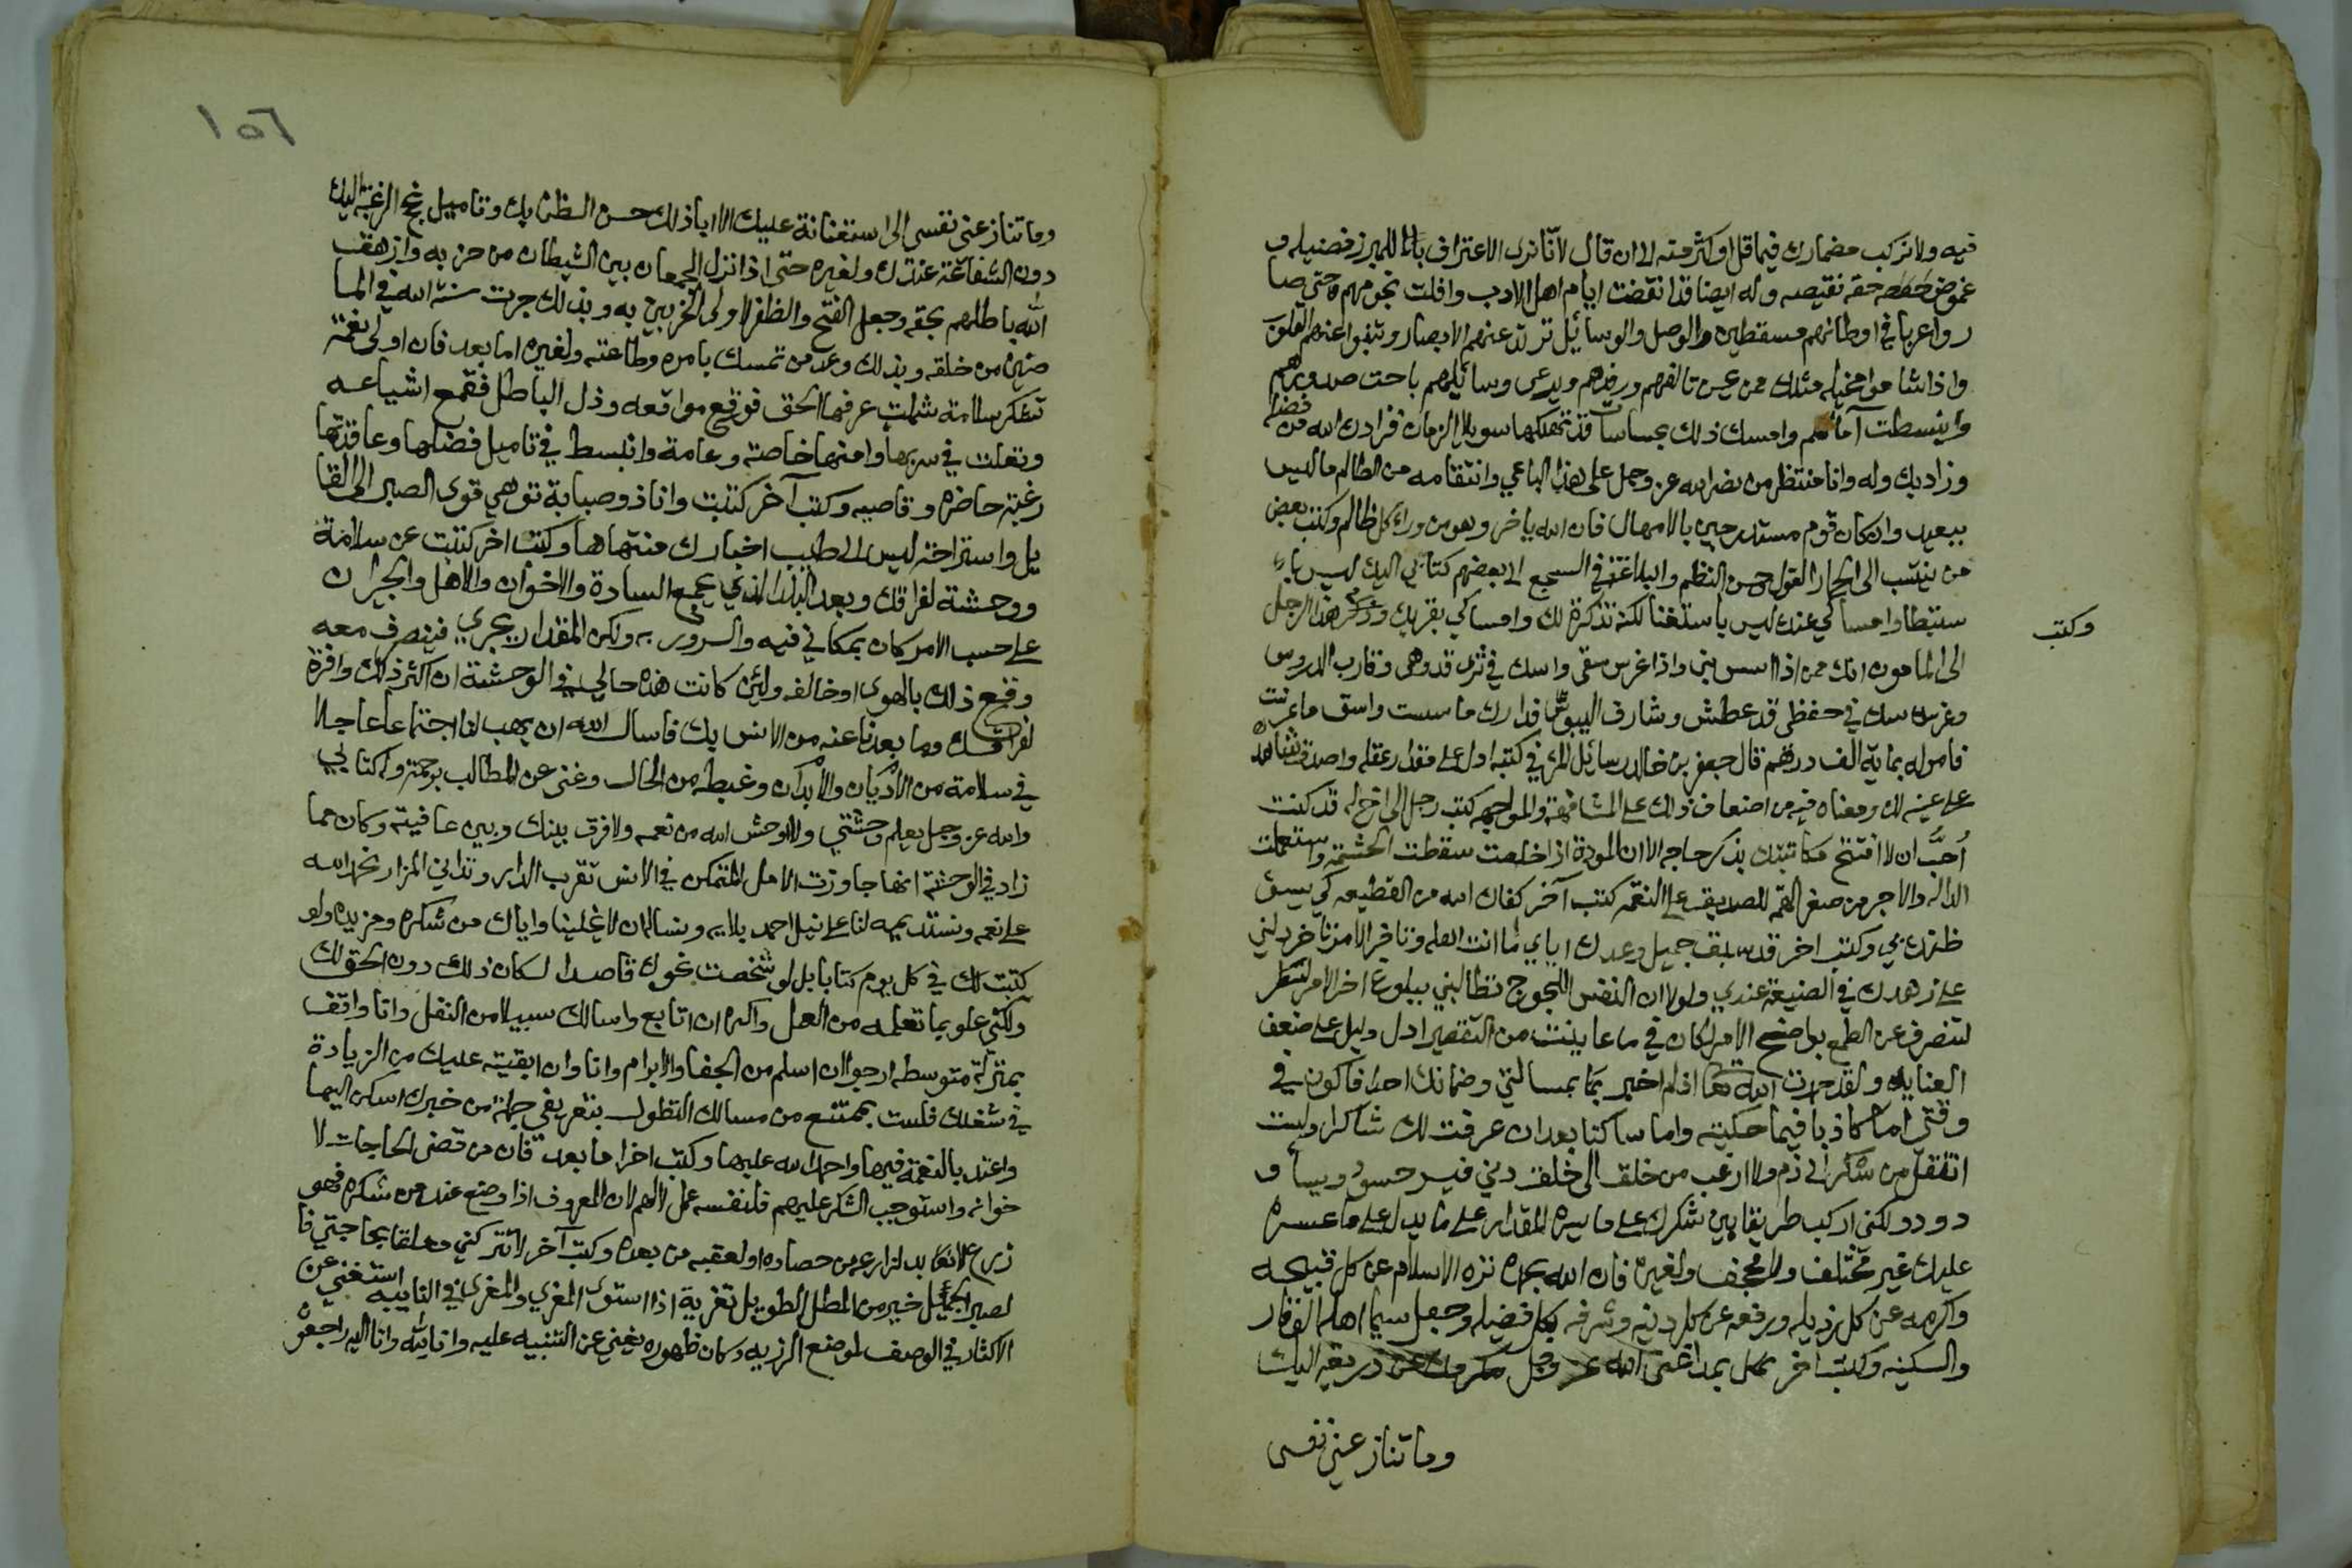 فيه ولا نركب مضمارك فيما قل او كثر منه الى ان قال لانا نرى الاعتراف بالمبرز فضيله و
غموض حقه نقيصه وله ايضا قد انقضت ايام اهل الادب وافلت نجومهم حتى صا
روا غربا في اوطانهم مسقطين والوصل والوسائل ترتد عنهم الابصار وتنبوا عنهم القلوب
واذا شاموا مخيله مثلك ممن عسى تالفهم ورفدهم ويرعى وسائلهم باحت صدورهم
وانبسطت آمالهم وامسك ذلك بحساسات قد تهلكها سو بلا الزمان فزادك الله من فضله
وزاد بك وله وانا منتظر من نصر الله عز وجل على هذا الباغي وانتقامه من الظالم ما ليس
ببعيد وان كان قوم مستدرجين بالامهال فان الله ياخر وهو من وراء كل ظالم وكتب بعض
من ينسب الى ايجاز القول وحسن النظم والبلاغة في السجع الى بعضهم كتابي اليك ليس با
ستبطا وامساكي عنك ليس باستغنا لكنه تذكرة لك وامساكي بقربك وذكر هذا الرجل
وكتب
الى المامون انك ممن اذا اسس بنى واذا غرس سقى واسك في ثرى قد وهى وقارب الدروس
وغرسك في حفظي قد عطش وشارف اليبوس فدارك ما اسست واسق ما غرست
فامر له بماية الف درهم قال جعفر بن خالد رسائل المرء في كتبه ادل على مقدار عقله واصدق شاهد
على عينه لك ومعناه فيه من اضعاف ذلك على المشافهة والمواجهه كتب رجل الى اخ له قد كنت
أحبّ ان لا افتتح مكاتبتك بذكر حاجه الا ان المودة اذا خلصت سقطت الحشمة واستعملت
الداله والاجر من صغر الهمه للصديق على النعمه كتب آخر كفاك الله من القطيعه كي يسى
ظنك بي وكتب اخر قد سبق جميل وعدك اياي ما انت اهله وتاخر الامر تاخر دلني
على زهدك في الصنيعة عندي ولولا ان النفس اللجوج تطالبني ببلوغ اخر الامر لتنظر
لتنصرف عن الطمع بواضح الامر لكان في ما عاينت من التقصير ادل دليل على ضعف
العنايه ولقد حمدت الله اذ لم اخبر بمسالتي وضمانك احدا فاكون في
وقتي اما كاذبا فيما حكيته واما ساكتا بعد ان عرفت لك شاكرا ولست
اتنقل من شكر الى ذم ولا ارغب من خلق الى خلق دني فيسر حسود ويسا و
دود ولكني اركب طريقا بين شكرك على ما يسره المقدار على ما يدل على ما عسره
عليك غير مختلف ولا مجحف ولغيره فان الله بحمده نزه الاسلام عن كل قبيحه
واكرمه عن كل رذيله ورفعه عن كل دنيه وشرفه بكل فضيله وجعل سيما اهله الوقار
والسكينه وكتب اخر الله عز وجل ذريعة اليك
وما تنازعني نفسى
١٥٦
وما تنازعني نفسي الى استعانة عليك الا اباذلك حسن الظن بك وتاميل نجح الرغبة اليك
دون الشفاعة عندك ولغيره حتى اذا نزل الجمعان بين الشيطان من حزبه وازهقت
الله باطلهم بحقه وجعل الفتح والظفر لاولى الحزبين به وبذلك جرت سنة الله في الما
ضين من خلقه وبذلك وعد من تمسك بامره وطاعته ولغيره اما بعد فان اولى نعمة
تشكر سلامة شملت عرفها الحق فوقع مواقعه وذل الباطل فقمع اشياعه
وتعلت في سربها وامنها خاصة وعامة وانبسط في تاميل فضلها وعاقدتها
رغبة حاضره وقاصيه وكتب آخر كتبت وانا ذو صبابة توهي قوى الصبر الى القا
يل واستراحة ليس الى طيب اخبارك منتهاها وكتب اخر كتبت عن سلامة
ووحشة لفراقك وبعد البلد الذي يجمع السادة والاخوان والاهل والجيران
على حسب الامر كان بمكاني فيه والسرور به ولكن المقدار يجري فيتصرف معه
وقع ذلك بالهوى او خالفه ولئن كانت هذه حالي في الوحشة ان اكثر ذلك وافره
لفراقك وما بعدنا عنه من الانس بك فاسال الله ان يهب لنا اجتماعا عاجلا
في سلامة من الاديان والابدان وغبطة من الحال وغنى عن المطالب برحمته ولكتابي
والله عز وجل يعلم وحشتي ولا اوحش الله من نعمه ولا فرق بينك وبين عافيته وكان مما
زاد في الوحشة انها جاوزت الامل المتمكن في الانس بقرب الدار وتداني المزار نحمد الله
على نعمه ونستديمه لنا على نيل احمد بلايه ونسال ان لا يخلينا واياك من شكره ومزيده ولو
كتبت لك في كل يوم كتابا بل لو شخصت نحوك قاصدا لكان ذلك دون الحق لك
ولكني علو بما تعلمه من العمل واكره ان اتابع واسالك سبيلا من الثقل وانا واقف
بمنزلة متوسطه ارجو ان اسلم من الجفا والابرام وانا وان ابقيته عليك من الزيادة
في شغلك فلست بممتنع من مسالك التطول بتعريفي جملة من خبرك اسكن اليها
واعتد بالنعمة فيها واحمد الله عليها وكتب اخر اما بعد فان من قضى الحاجات لا
خوانه واستوجب الشكر عليهم فلنفسه عمل لا لهم لان المعروف اذا وضع عند من شكره فهو
زرع لا بد لزارعه من حصاده او لعقبه من بعده وكتب آخر لا تتركني معلقا بحاجتي فا
لصبر الجميل خير من المطل الطويل تعزية اذا استوى المعزي والمعزى في النايبه استغني عن
الاكثار في الوصف لموضع الرزيه وكان ظهوره يغني عن التنبيه عليه وانا لله وانا اليه راجعون